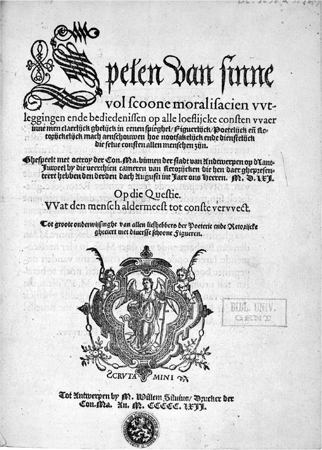 Spelen van sinne
vol scoone moralisacien vvt-
leggingen ende bediedenissen op alle loeflijcke consten vvaer
inne men claerlijck ghelijck in eenen spieghel, Figuerlijck, Poetelijck eñ Re-
torijckelijck mach aenschouwen hoe nootsakelijck ende dienstelijck
die selue consten allen menschen zijn.
Ghespeelt met octroy der Con. Ma. binnen der stadt van Andtwerpen op d'Lant-
Juweel by die veerthien cameren van Retorijcken die hen daer ghepresen-
teert hebben den derden dach Augusti int Jaer ons Heeren M. D. LXI.
Op die Questie.
VVat den mensch aldermeest tot conste vervvect.
Tot groote onderwijsinghe van allen liefhebbers der Poeterie ende Retorijcke
gheciert met diuersche schoone Figueren.
SCRVTAMINI
BIBL. UNIV.
GENT
Tot Antwerpen by M. Willem Siluius, Drucker der
Con. Ma. An. M. CCCCC. LXII.